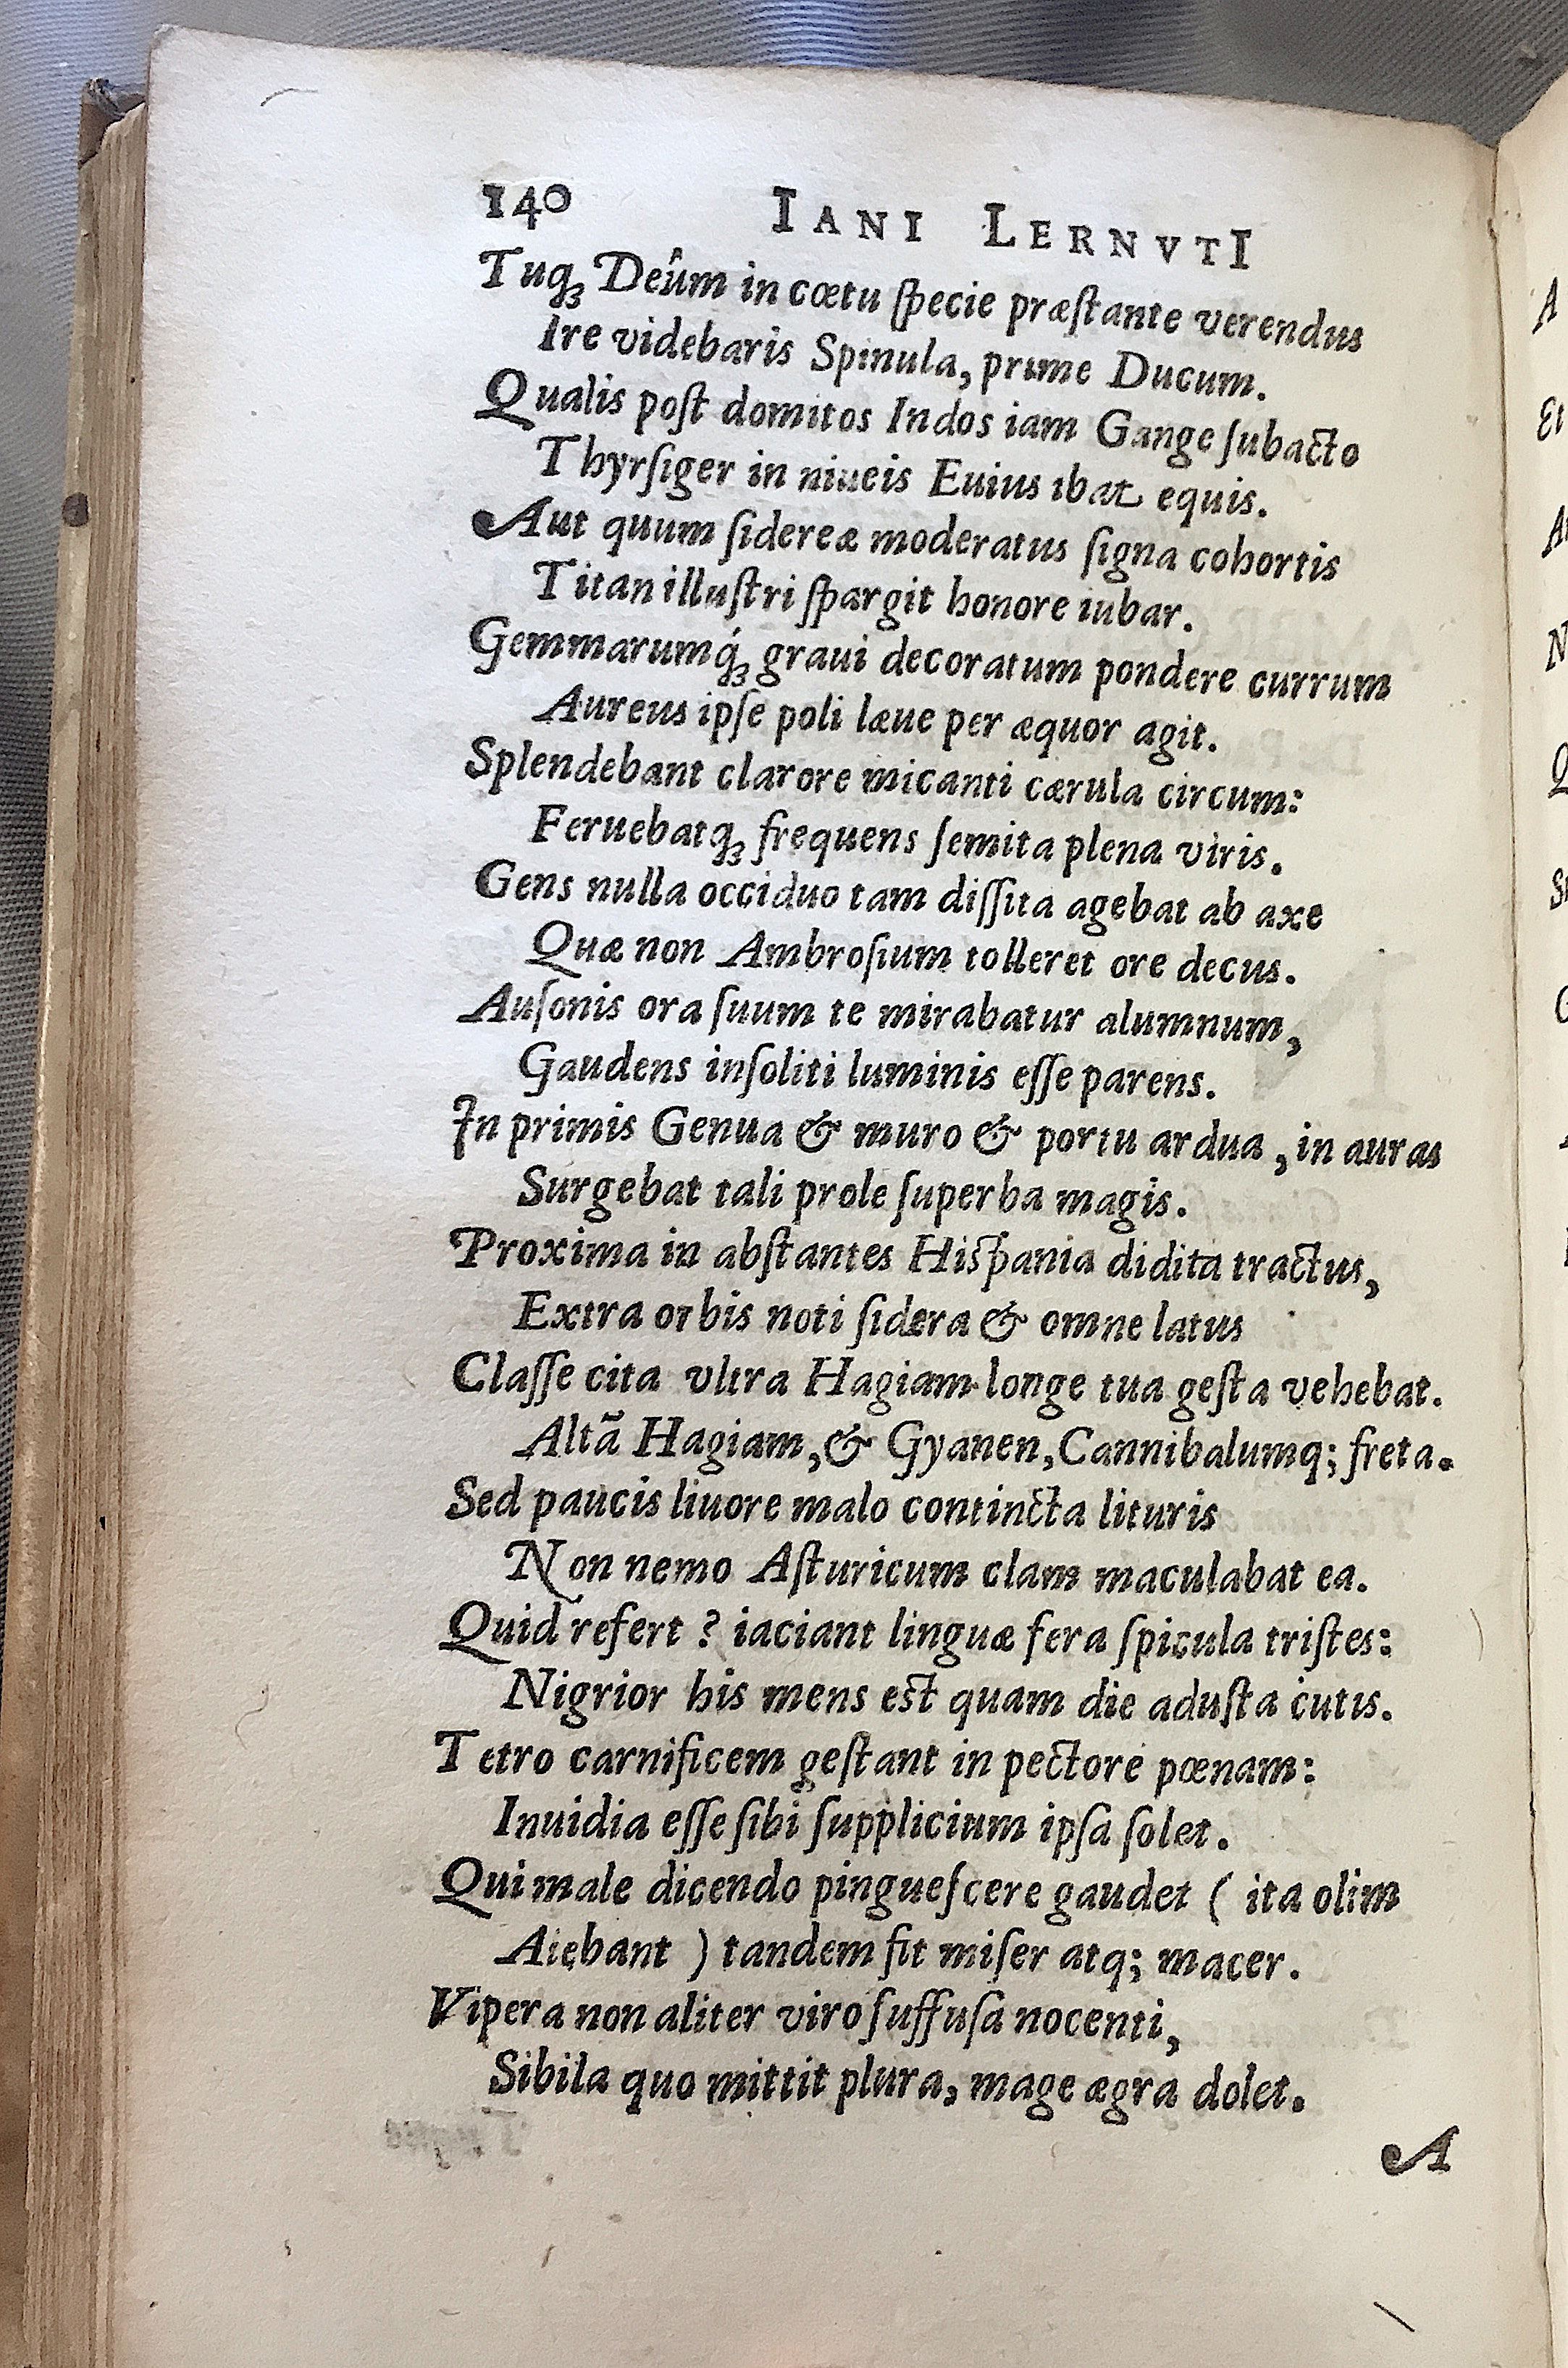 140 IANI LERNVTI
Tuqꝫ Deûm in cœtu ſpecie præſtante verendus
Ire videbaris Spinula, prime Ducum.
Qualis poſt domitos Indos iam Gange ſubacto
Thyrſiger in niueis Euius ibat equis.
Aut quum ſidereæ moderatus ſigna cohortis
Titan illuſtri ſpargit honore iubar.
Gemmarumq́ꝫ graui decoratum pondere currum
Aureus ipſe poli læue per æquor agit.
Splendebant clarore micanti cærula circum:
Feruebatqꝫ frequens ſemita plena viris.
Gens nulla occiduo tam diſſita agebat ab axe
Quæ non Ambroſium tolleret ore decus.
Auſonis ora ſuum te mirabatur alumnum,
Gaudens inſoliti luminis eſſe parens.
In primis Genua & muro & portu ardua, in auras
Surgebat tali prole ſuperba magis.
Proxima in abſtantes Hiſpania didita tractus,
Extra orbis noti ſidera & omne latus
Claſſe cita vltra Hagiam longe tua geſta vehebat.
Altã Hagiam, & Gyanen, Cannibalumq; freta.
Sed paucis liuore malo contincta lituris
Non nemo Aſturicum clam maculabat ea.
Quid refert? iaciant linguæ fera ſpicula triſtes:
Nigrior his mens eſt quam die aduſta cutis.
Tetro carnificem geſtant in pectore pœnam:
Inuidia eſſe ſibi ſupplicium ipſa ſolet.
Qui male dicendo pingueſcere gaudet ( ita olim
Aiebant ) tandem fit miſer atq; macer.
Vipera non aliter viro ſuffuſa nocenti,
Sibila quo mittit plura, mage ægra dolet.
A